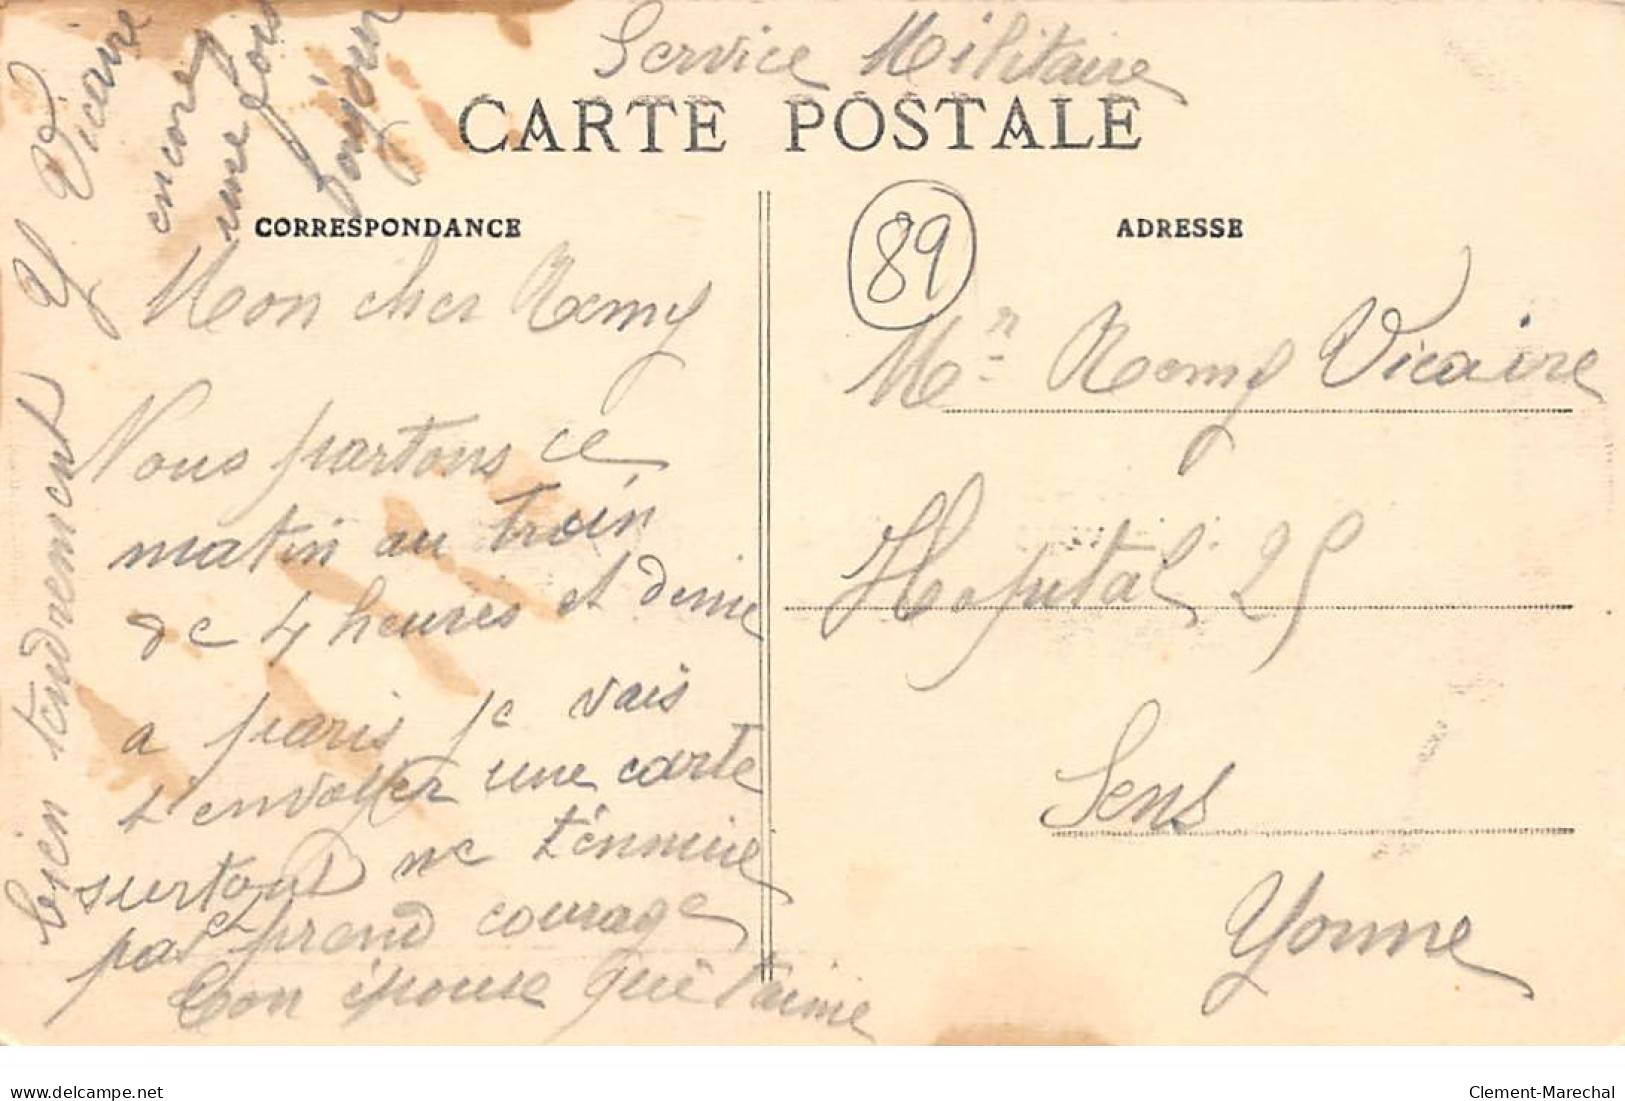 Service Militaire
CARTE POSTALE
CORRESPONDANCE
ADRESSE
89
Mon cher Remy
Nous partons ce
matin au train
de 4 heures et demie
a paris je vais
t'envoyer une carte
surtout ne t'énnuie
pas et prend courage
ton épouse qui t'aime
bien tendrement Y Vicaire
encore
une fois
bonjour
Mr Remy Vicaire
Hopital 25
Sens
Yonne
delcampe.net
Clement-Marechal